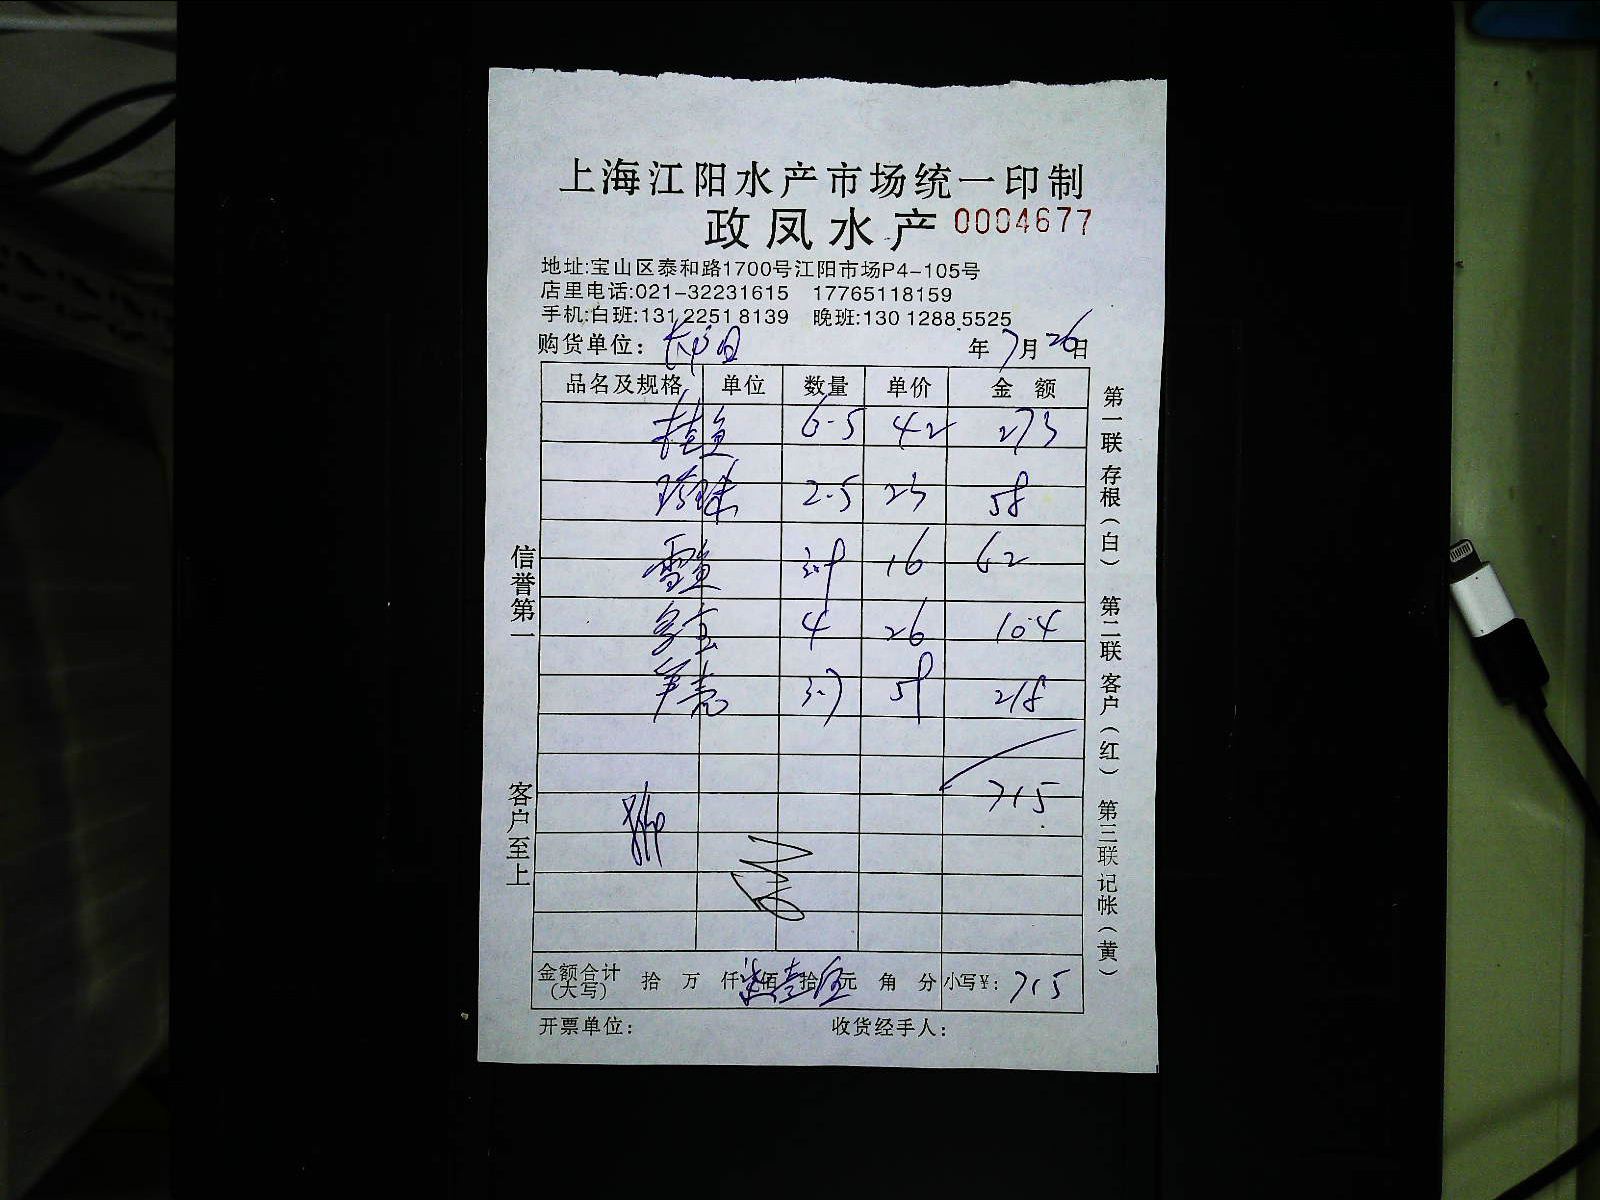 上海江阳水产市场统一印制
政凤水产 0004677
地址:宝山区泰和路1700号江阳市场P4-105号
店里电话:021-32231615 17765118159
手机:白班:131 2251 8139 晚班:130 1288 5525
购货单位: 年 7 月 26 日
品名及规格 单位 数量 单价 金额
桂鱼 6.5 42 273
珍珠 2.5 23 58
雪鱼 3.9 16 62
多宝 4 26 104
3.7 59 218
715
金额合计(大写) 拾 万 仟 柒 佰 壹 拾 伍 元 角 分 小写¥: 715
开票单位: 收货经手人:
信誉第一
客户至上
第一联 存根(白) 第二联 客户(红) 第三联 记帐(黄)